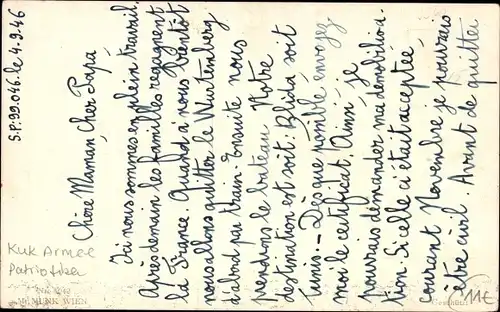 S.P. 99.046. le 4.9.46
Chère Maman, Cher Papa,
Ici nous sommes en plein travail.
Après demain les familles regagnent
la France. Quand à nous bientôt
nous allons quitter le Wurtemberg
d'abord par train. Ensuite nous
prendrons le bateau. Notre
destination est soit: Blida soit
Tunis -- Dès que possible envoyez
moi le certificat. Ainsi, je
pourrais demander ma démobilisa-
tion. Si celle ci était acceptée,
courant Novembre je pourrais
être civil. Avant de quitter
Kuk Armee
Patriotika
MUNK WIEN
Geschützt
11€